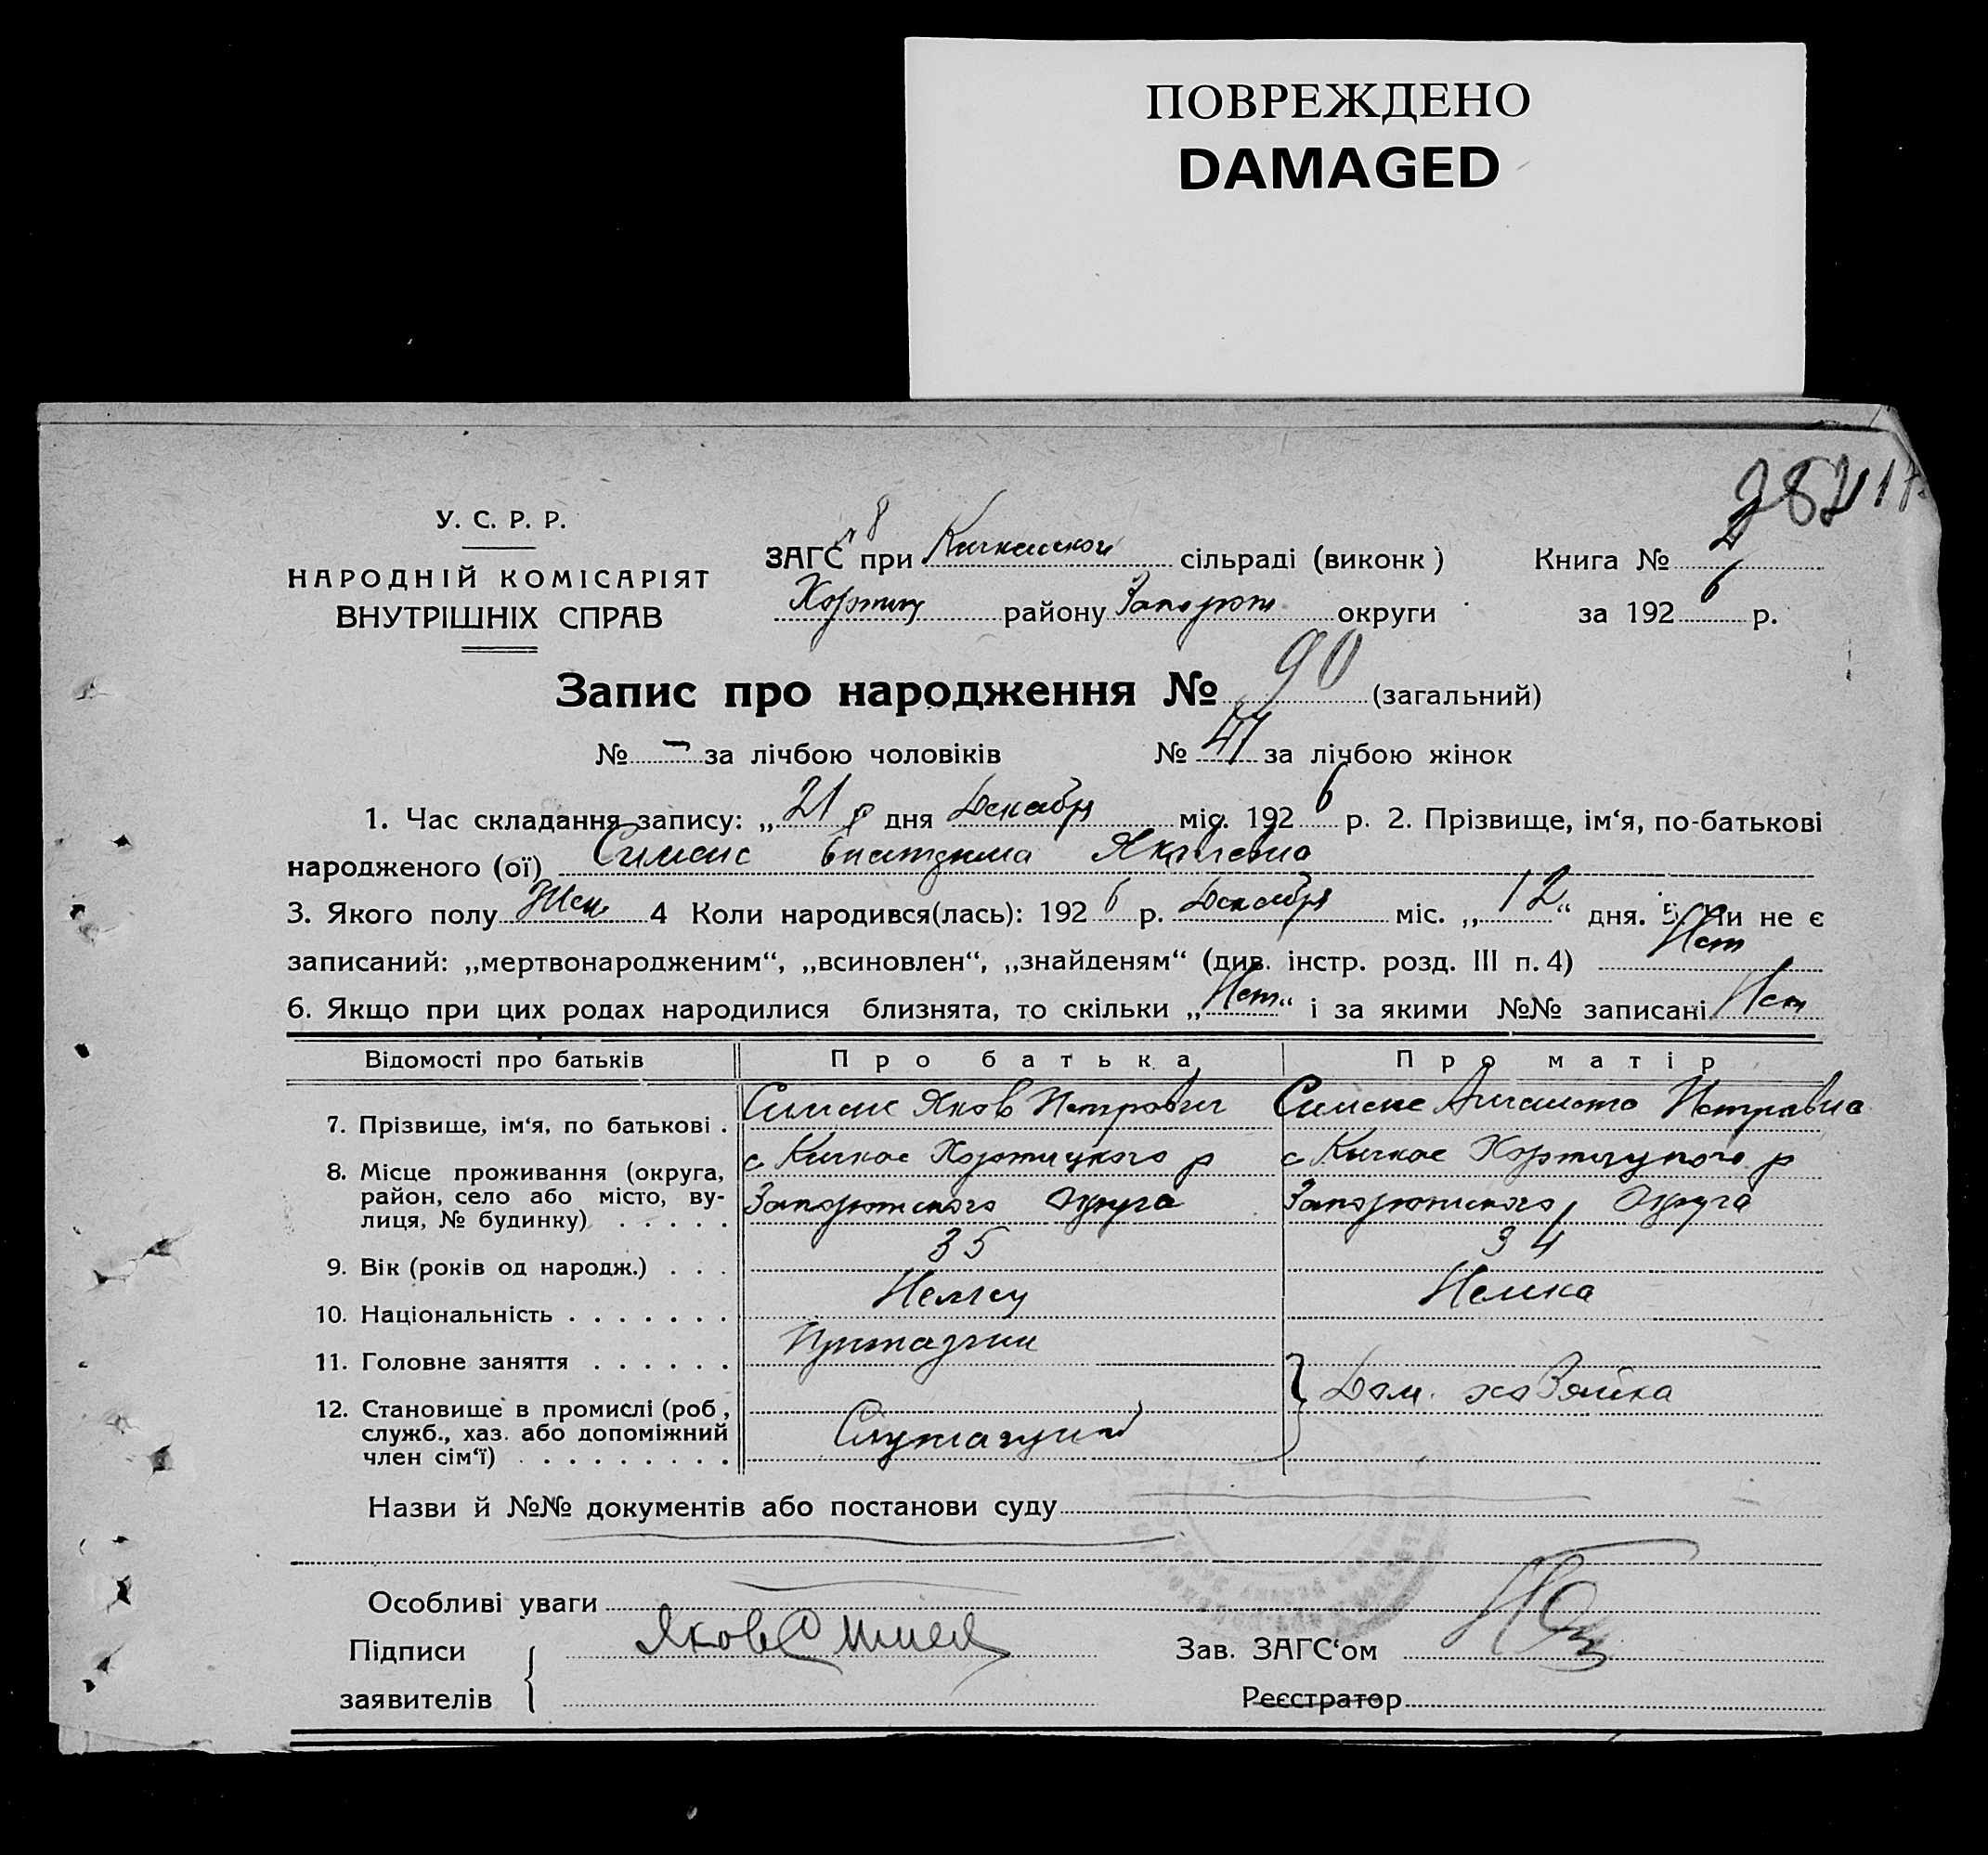 ПОВРЕЖДЕНО
DAMAGED
У. С. Р. Р.
НАРОДНІЙ КОМІСАРІЯТ
ВНУТРІШНІХ СПРАВ
ЗАГС при Кичкаской сільраді (виконк)
Хортиц району Запорож округи
Книга №
за 1926 р.
Запис про народження № 90 (загальний)
№ – за лічбою чоловіків № 47 за лічбою жінок
1. Час складання запису: „21 дня Декабр міс. 1926 р. 2. Прізвище, ім‘я, по-батькові
народженого (ої) Сименс Яковлевна
3. Якого полу Жен 4 Коли народився(лась): 1926 р. Декабря міс. „12“ дня. 5. Чи не є
записаний: „мертвонародженим“, „всиновлен“, „знайденям“ (див. інстр. розд. III п. 4) Нет
6. Якщо при цих родах народилися близнята, то скільки „Нет“ і за якими №№ записані Нет
Відомості про батьків Про батька Про матір
7. Прізвище, ім‘я, по батькові . Сименс Яков Петрович Сименс Петровна
8. Місце проживання (округа, район, село або місто, вулиця, № будинку) . . . . . с Кичкас Хортицкого р с Кичкас Хортицкого р
Запорожского Округа Запорожского Округа
9. Вік (років од народж.) . . . 35 34
10. Національність . . . . . . . Немец Немка
11. Головне заняття . . . . . . Приказчик
12. Становище в промислі (роб, служб., хаз. або допоміжний член сім‘ї) . . . . . . . . . Служащий Дом. хозяйка
Назви й №№ документів або постанови суду
Особливі уваги
Підписи
заявителів
Яков
Зав. ЗАГС‘ом
Реєстратор